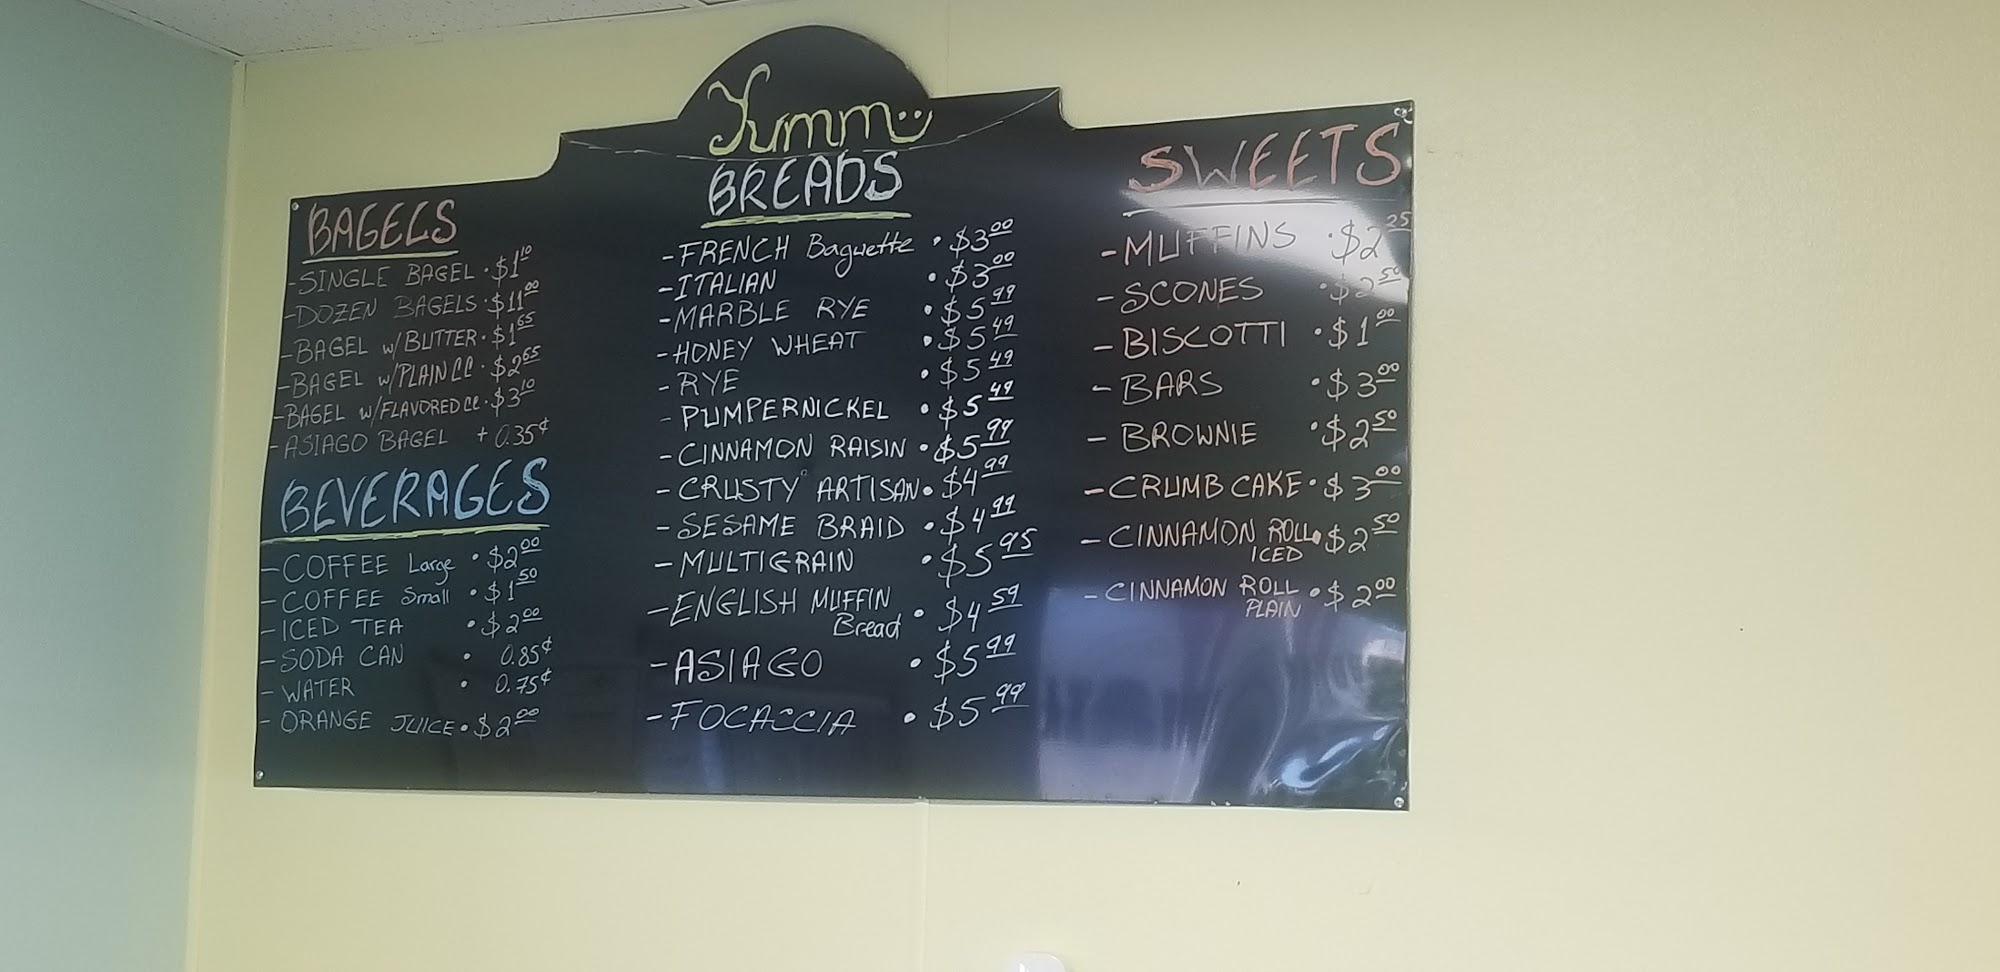 Yumm
BAGELS
-SINGLE BAGEL · $1.10
-DOZEN BAGELS · $11.00
-BAGEL w/BUTTER · $1.65
-BAGEL w/PLAIN CC · $2.65
-BAGEL w/FLAVORED CC · $3.10
-ASIAGO BAGEL + 0.35¢
BEVERAGES
-COFFEE Large · $2.00
-COFFEE Small · $1.50
-ICED TEA · $2.00
-SODA CAN · 0.85¢
-WATER · 0.75¢
-ORANGE JUICE · $2.00
BREADS
-FRENCH Baguette · $3.00
-ITALIAN · $3.00
-MARBLE RYE · $5.99
-HONEY WHEAT · $5.49
-RYE · $5.49
-PUMPERNICKEL · $5.49
-CINNAMON RAISIN · $5.99
-CRUSTY ARTISAN · $4.99
-SESAME BRAID · $4.99
-MULTIGRAIN · $5.95
-ENGLISH MUFFIN
Bread · $4.59
-ASIAGO · $5.99
-FOCACCIA · $5.99
SWEETS
-MUFFINS · $2.25
-SCONES · $2.50
-BISCOTTI · $1.00
-BARS · $3.00
-BROWNIE · $2.50
-CRUMB CAKE · $3.00
-CINNAMON ROLL · $2.50
ICED
-CINNAMON ROLL · $2.00
PLAIN